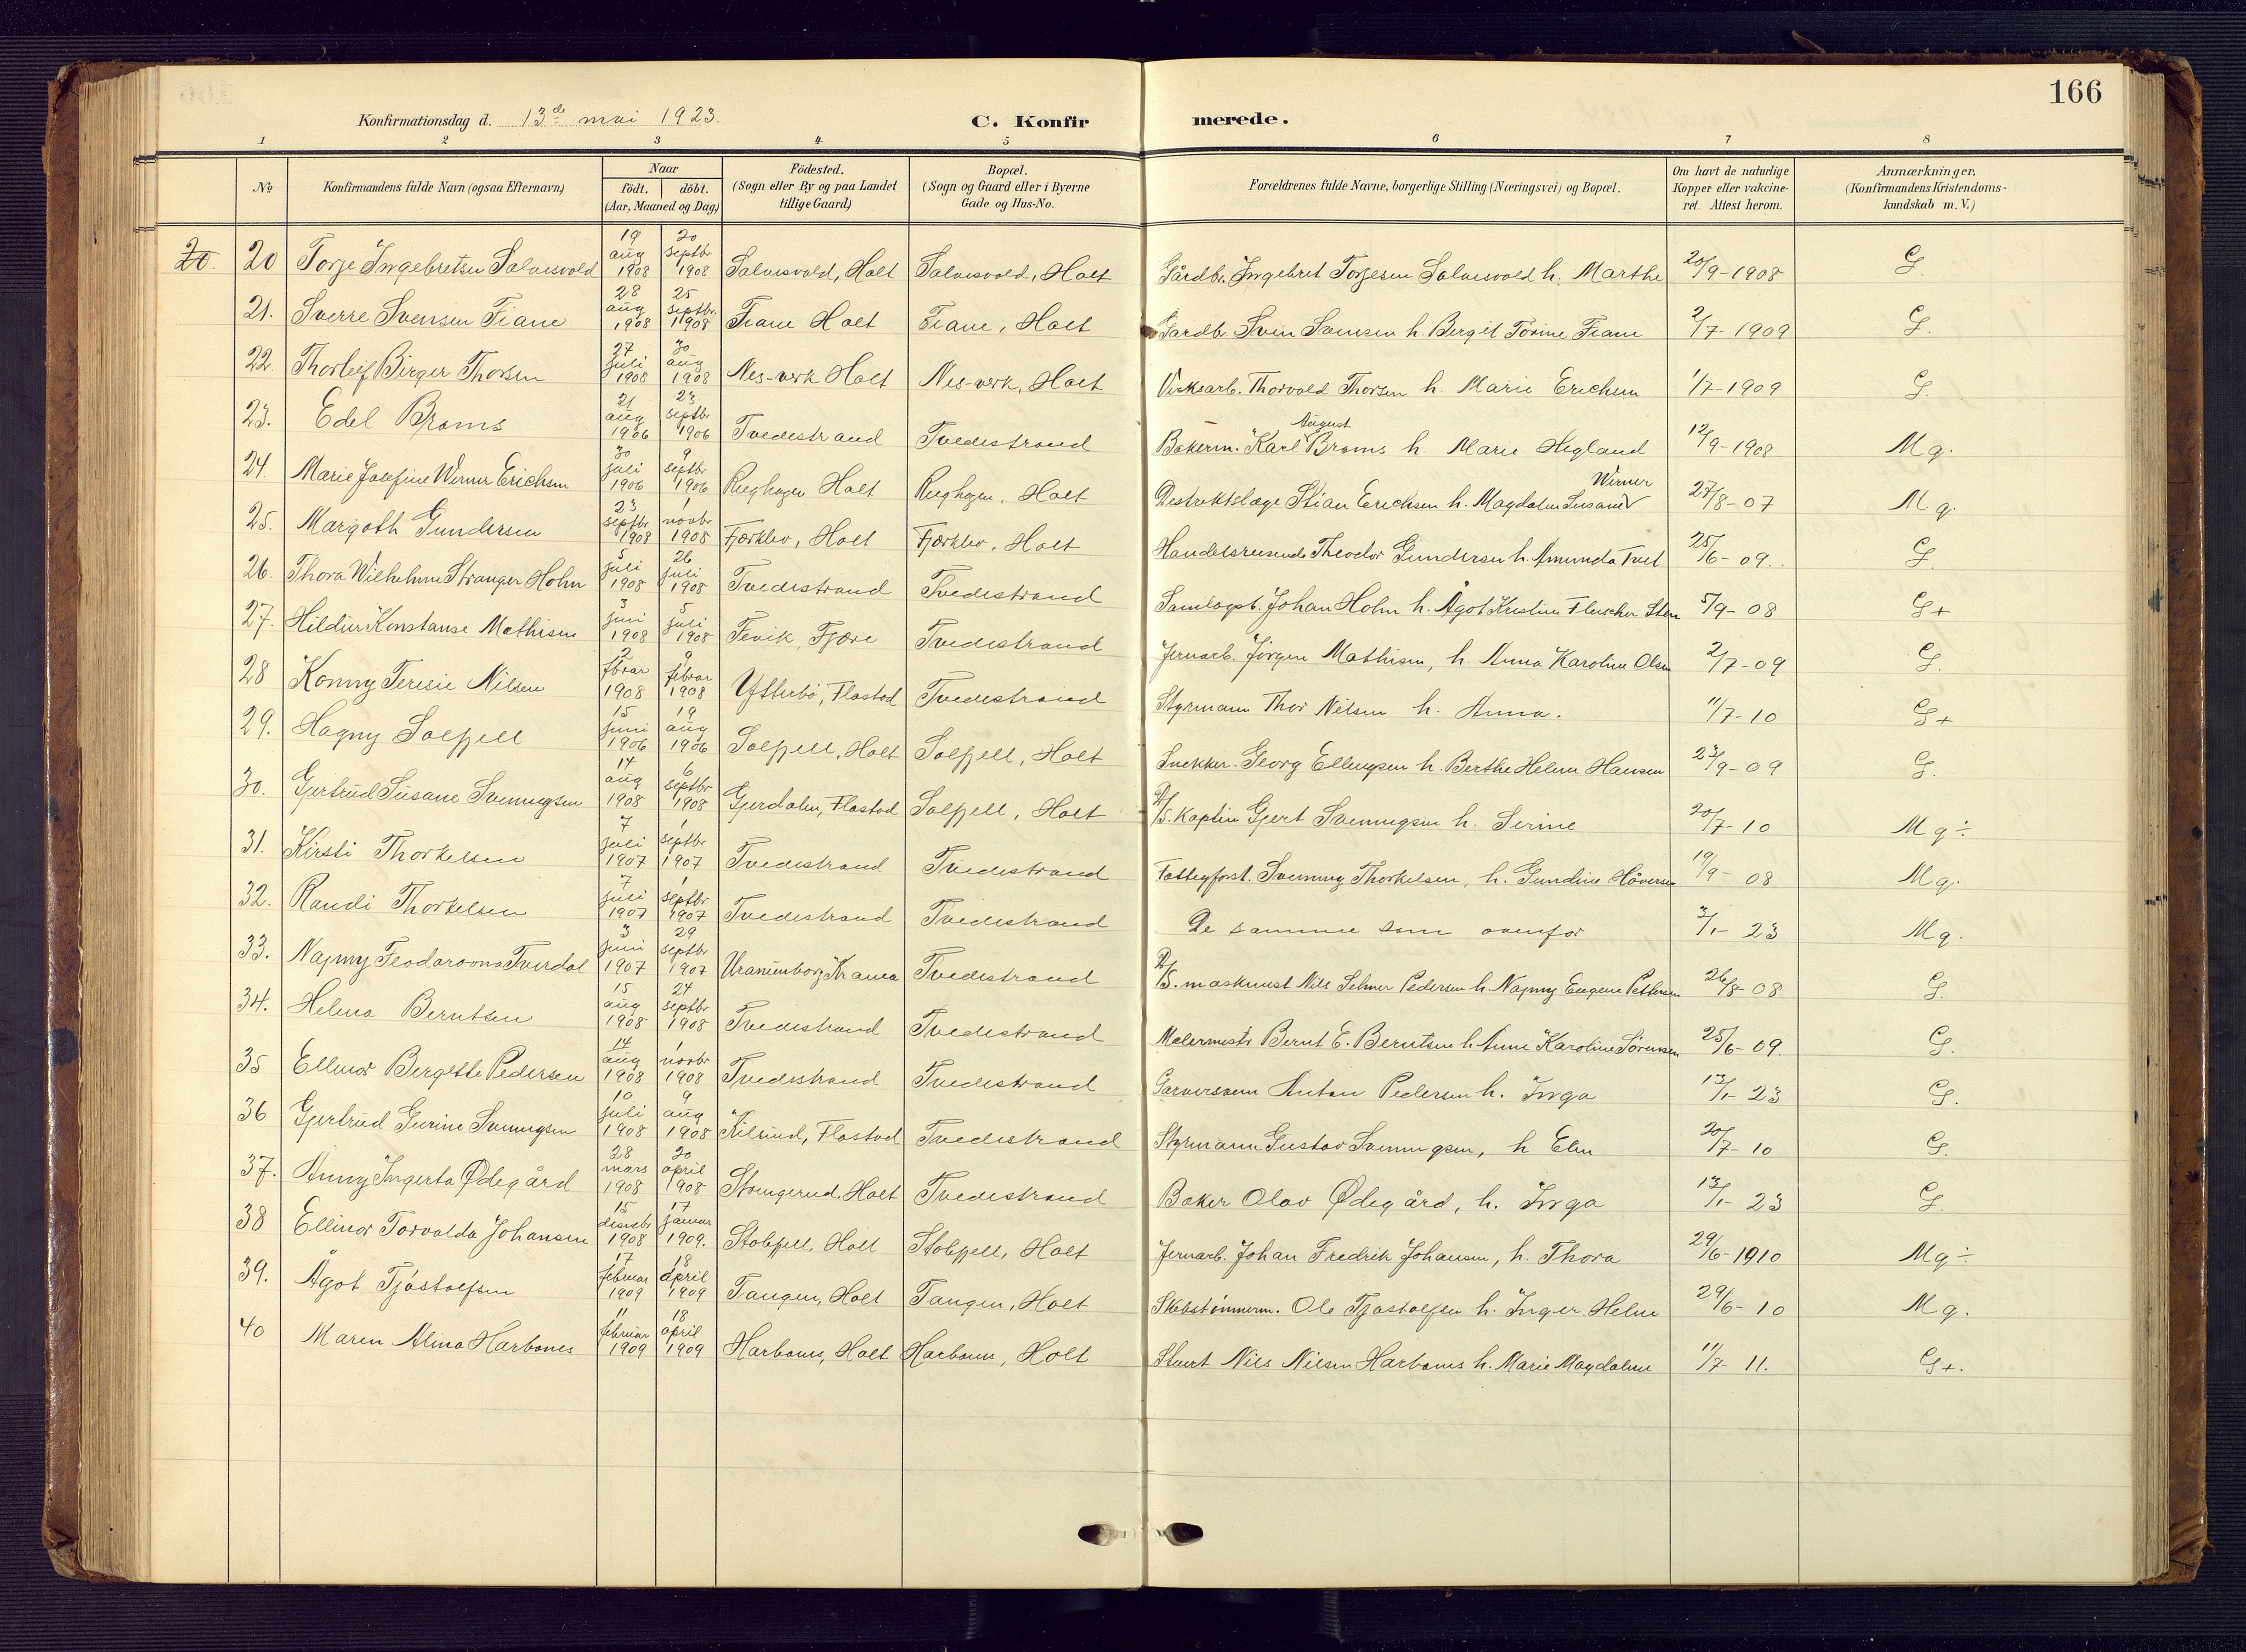 166
Konfirmationsdag d. 13de mai 1923.
C. Konfirmerede.
1 2 3 4 5 6 7 8
No
Konfirmandens fulde Navn (ogsaa Efternavn)
Naar
födt. döbt.
(Aar, Maaned og Dag)
Födested.
(Sogn eller By og paa Landet
tillige Gaard)
Bopæl.
(Sogn og Gaard eller i Byerne
Gade og Hus-No.
Forældrenes fulde Navne, borgerlige Stilling (Næringsvei) og Bopæl.
Om havt de naturlige
Kopper eller vakcine-
ret. Attest herom.
Anmærkninger.
(Konfirmandens Kristendoms-
kundskab m. V.)
20. 20 Torje Ingebretsen Salvesvold 19 aug 1908 20 septbr 1908 Salvesvold, Holt Salvesvold, Holt Gårdbr. Ingebret Torjesen Salvesvold h. Marthe 20/9-1908 G.
21. Sverre Svensen Fiane 28 aug 1908 25 septbr. 1908 Fiane Holt Fiane, Holt Gardbr. Sven Svensen h. Bergit Tomine Fiane 2/7-1909 G.
22. Thorleif Birger Thorsen 27 juli 1908 30 aug 1908 Nes-verk Holt Nes-verk, Holt Verksarb. Thorvald Thorsen h. Marie Erichsen 1/7-1909 G.
23. Edel Broms 21 aug 1906 23 septbr 1906 Tvedestrand Tvedestrand Bakerm. Karl August Broms h. Marie Hegland 12/9-1908 Mg.
24. Marie Josefine Werner Erichsen 30 juli 1906 9 septbr 1906 Berghagen Holt Berghagen, Holt Destriktslæge Stian Erichsen h. Magdalene Susanne Werner 27/8-07 Mg.
25. Margoth Gundersen 23 septbr 1908 1 novbr 1908 Færklev, Holt Færklev, Holt Handelsreisende Theodor Gundersen h. Amunda Tvet 25/6-09. G.
26. Thora Wilhelmine Stranger Holm 5 juli 1908 26 juli 1908 Tvedestrand Tvedestrand Samlagsb. Johan Holm h. Ågot Kristine Fleischer Sten 5/9-08 G+
27. Hildur Konstanse Mathisen 3 juni 1908 5 juli 1908 Fevik, Fjære Tvedestrand Jernarb. Jörgen Mathisen, h. Anna Karoline Olsen 2/7-09 G.
28 Konny Teresie Nilsen 2 fbrar 1908 9 febrar 1908 Ytterbö, Flostad Tvedestrand Styrmann Thor Nilsen h. Anna. 11/7-10 G+
29. Hagny Solfjell 15 juni 1906 19 aug 1906 Solfjell, Holt Solfjell, Holt Snekker. Georg Ellingsen h. Berthe Helene Hansen 23/9-09 G.
30. Gjertrud Susane Svenningsen 14 aug 1908 6 septbr 1908 Gjerdalen, Flostad Solfjell, Holt D/S. Kaptein Gjert Svenningsen h. Serine 20/7-10 Mg÷
31. Kirsti Thorkelsen 7 juli 1907 1 septbr 1907 Tvedestrand Tvedestrand Fattigforst. Svenning Thorkelsen, h. Gundine Håversen 19/9-08 Mg.
32. Randi Thorkelsen 7 juli 1907 1 septbr 1907 Tvedestrand Tvedestrand De samme som ovenfor 3/1-23 Mg.
33. Nagny Feodorovna Tverdal 3 juni 1907 29 septbr 1907 Uranienborg, Krania Tvedestrand D/S. maskinist Nils Selmer Pedersen h. Nagny Eugene Pettersen 26/8-08 G.
34. Helena Berntsen 15 aug 1908 24 septbr 1908 Tvedestrand Tvedestrand Malermestr Bernt E. Berntsen h. Anne Karoline Sørensen 25/6-09. G.
35 Ellinor Bergette Pedersen 14 aug 1908 1 novbr 1908 Tvedestrand Tvedestrand Garversvenn Anton Pedersen h. Inga 13/1-23 G.
36 Gjertrud Gurine Svenningsen 10 juli 1908 9 aug 1908 Kilsund, Flostad Tvedestrand Styrmann Gustav Svenningsen, h Elen 20/7-10 G.
37. Anny Ingerta Ødegård 28 mars 1908 20 april 1908 Strengerud, Holt Tvedestrand Baker Olav Ødegård, h. Inga 13/1-23 G.
38 Ellinor Torvalda Johansen 15 desebr 1908 17 januar 1909. Stolfjell, Holt Stolfjell, Holt Jernarb. Johan Fredrik Johansen, h. Thora 29/6-1910 Mg÷
39. Ågot Tjøstolfsen 17 februar 1909 18 april 1909 Tangen, Holt Tangen, Holt Skibstömmerm. Ole Tjøstolfsen h. Inger Helene 29/6-10 Mg.
40 Maren Alina Harbones 11 februar 1909 18 april 1909 Harbones, Holt Harbones, Holt Stuert Nils Nilsen Harbones h. Marie Magdalene 11/7-11. G+.